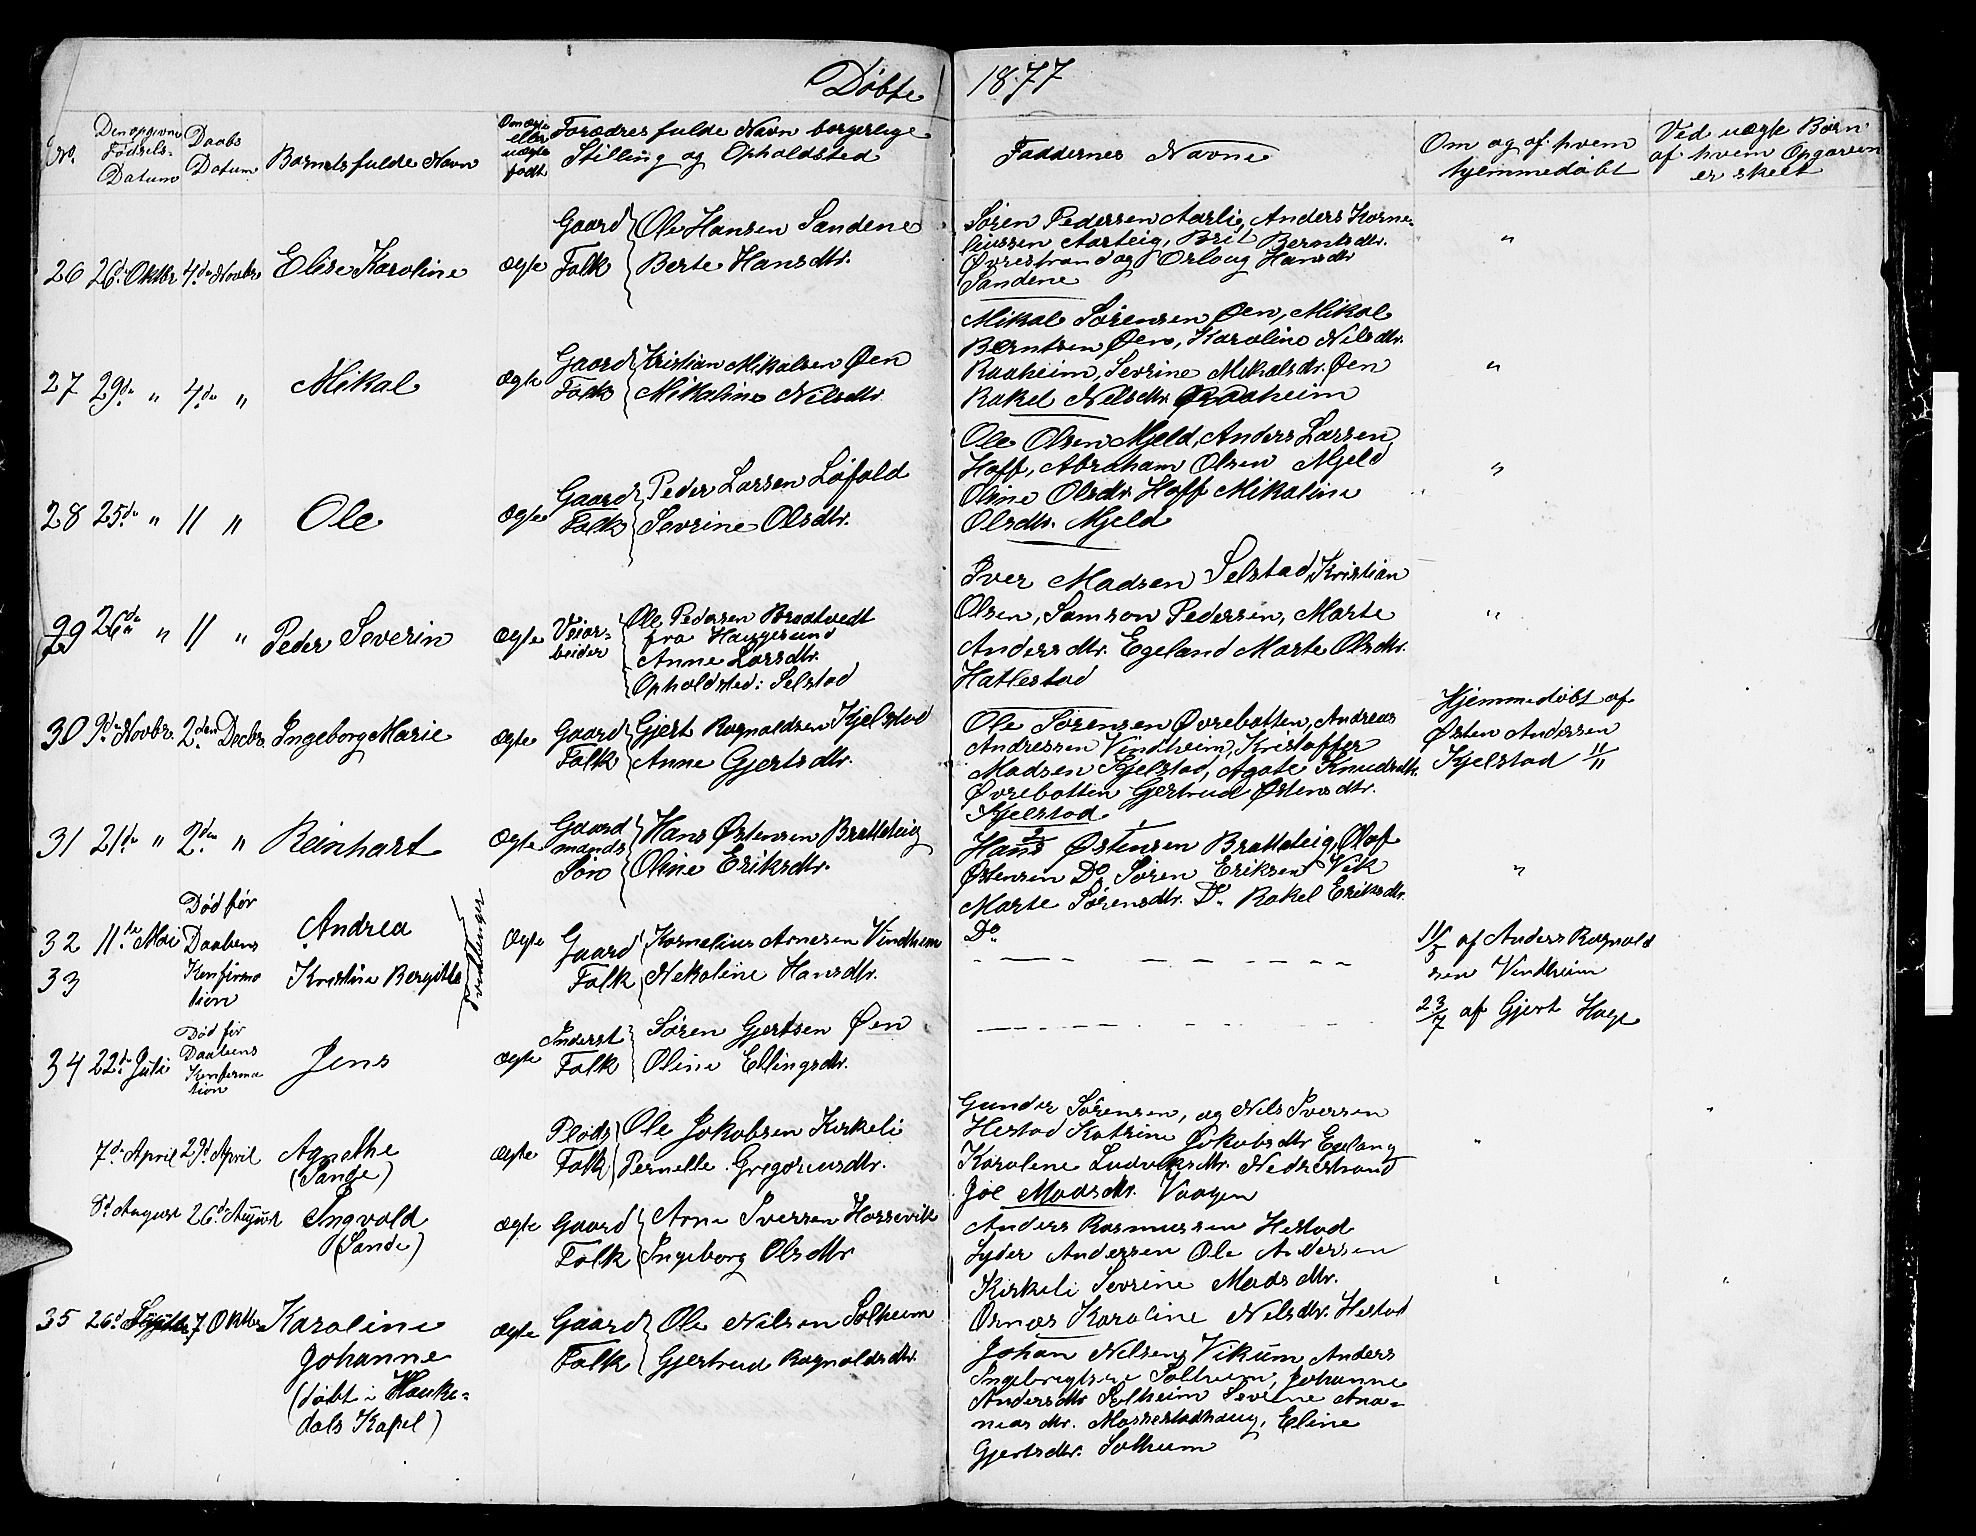 Døbte 1877
No. Den opgivne Fødsels- Datum Daabs Datum Barnets fulde Navn Om ægte eller uægte født Forældres fulde Navn borgerlige Stilling og Opholdsted Faddernes Navne Om og af hvem hjemmedøbt Ved uægte Børn af hvem Opgaven er skeet
26 26d Oktbr 4de Novbr Elise Karoline Ægte Gaard Folk Ole Hansen Sandene
Berte Hansdtr.
Søren Pedersen Aarli, Anders Korne-
liussen Aarteig, Brit Berntsdtr.
Øvrestrand og Orloug Hansdtr
Sandene
"
27 29de " 4de " Mikal Ægte Gaard Folk Kristian Mikalsen Øen
Mikaline Nilsdtr.
Mikal Sørensen Øen, Mikal
Berntsen Øen, Karoline Nilsdtr.
Raaheim, Sevrine Mikalsdtr. Øen
Rakel Nilsdtr. Raaheim
"
28 25de " 11 " Ole Ægte Gaard Folk Peder Larsen Løfald
Sevrine Olsdtr.
Ole Olsen Mjeld, Anders Larsen
Hoff, Abraham Olsen Mjeld
Oline Olsdtr. Hoff Mikaline
Olsdtr. Mjeld
"
29 26de " 11 " Peder Severin Ægte Veiar-
beider
Ole Pedersen Braatvedt
fra Haugesund
Anne Larsdtr.
Opholdsted: Selstad
Iver Madsen Selstad, Kristian
Olsen, Samson Pedersen, Marte
Andersdtr. Egeland Marte Olsdtr.
Hatlestad
"
30 9de Novbr. 2den Decbr. Ingeborg Marie Ægte Gaard Folk Gjert Ragnaldsen Kjelstad
Anne Gjertsdtr.
Ole Sørensen Øvrebotten, Andreas
Andressen Vindheim, Kristoffer
Madsen Kjelstad, Agate Knudsdtr.
Øvrebotten Gjertrud Østensdtr.
Kjelstad
Hjemmedøbt af
Østen Andersen
Kjelstad 11/11
31 21de " 2den " Reinhart Ægte Gaard
mands
Søn
Hans Østensen Bratteteig
Oline Eriksdtr.
Hans Østensen Bratteteig, Olaf
Østensen Do Søren Eriksen Vik
Marte Sørensdtr. Do Rakel Eriksdtr.
Do
"
32 11te Mai Død før
Daabens
Konfirma
tion
Andrea
33 Kristine Bergitte
Tvillinger
Ægte Gaard Folk Kornelius Arnesen Vindheim
Nikoline Hansdtr.
11/5 af Anders Ragnald
sen Vindheim
34 22de Juli Død før
Daabens
Konfirma
tion
Jens Ægte Inderst Folk Søren Gjertsen Øen
Oline Ellingsdtr.
23/7 af Gjert Hage
7de April 29d April Agnethe
(Sande)
Ægte Plads Folk Ole Jakobsen Kirkeli
Pernelle Gregoriusdtr.
Gunder Sørensen, og Nils Iversen
Hestad Katrine Jakobsdtr Egeland
Karolene Ludviksdtr. Nedrestrand
Joe Madsdtr. Vaagen
"
8d August 26d August Ingvald
(Sande)
Ægte Gaard Folk Arne Iversen Horsevik
Ingeborg Olsdtr
Anders Rasmussen Hestad
Syder Andersen Ole Andersen
Kirkeli Sevrine Madsdtr.
Osnæs Karoline Nilsdtr. Hestad
35 26d 7 Oktbr Karoline
Johanne
(døbt i Hauke-
dals Kapel)
Ægte Gaard Folk Ole Nilsen Solheim
Gjertrud Ragnaldsdtr.
Johan Nilsen Vikum Anders
Ingebrigtsen Solheim, Johanne
Andersdtr Solheim Sevrine Ana-
niasdtr. Massestadhaug, Eline
Gjertsdtr. Solheim